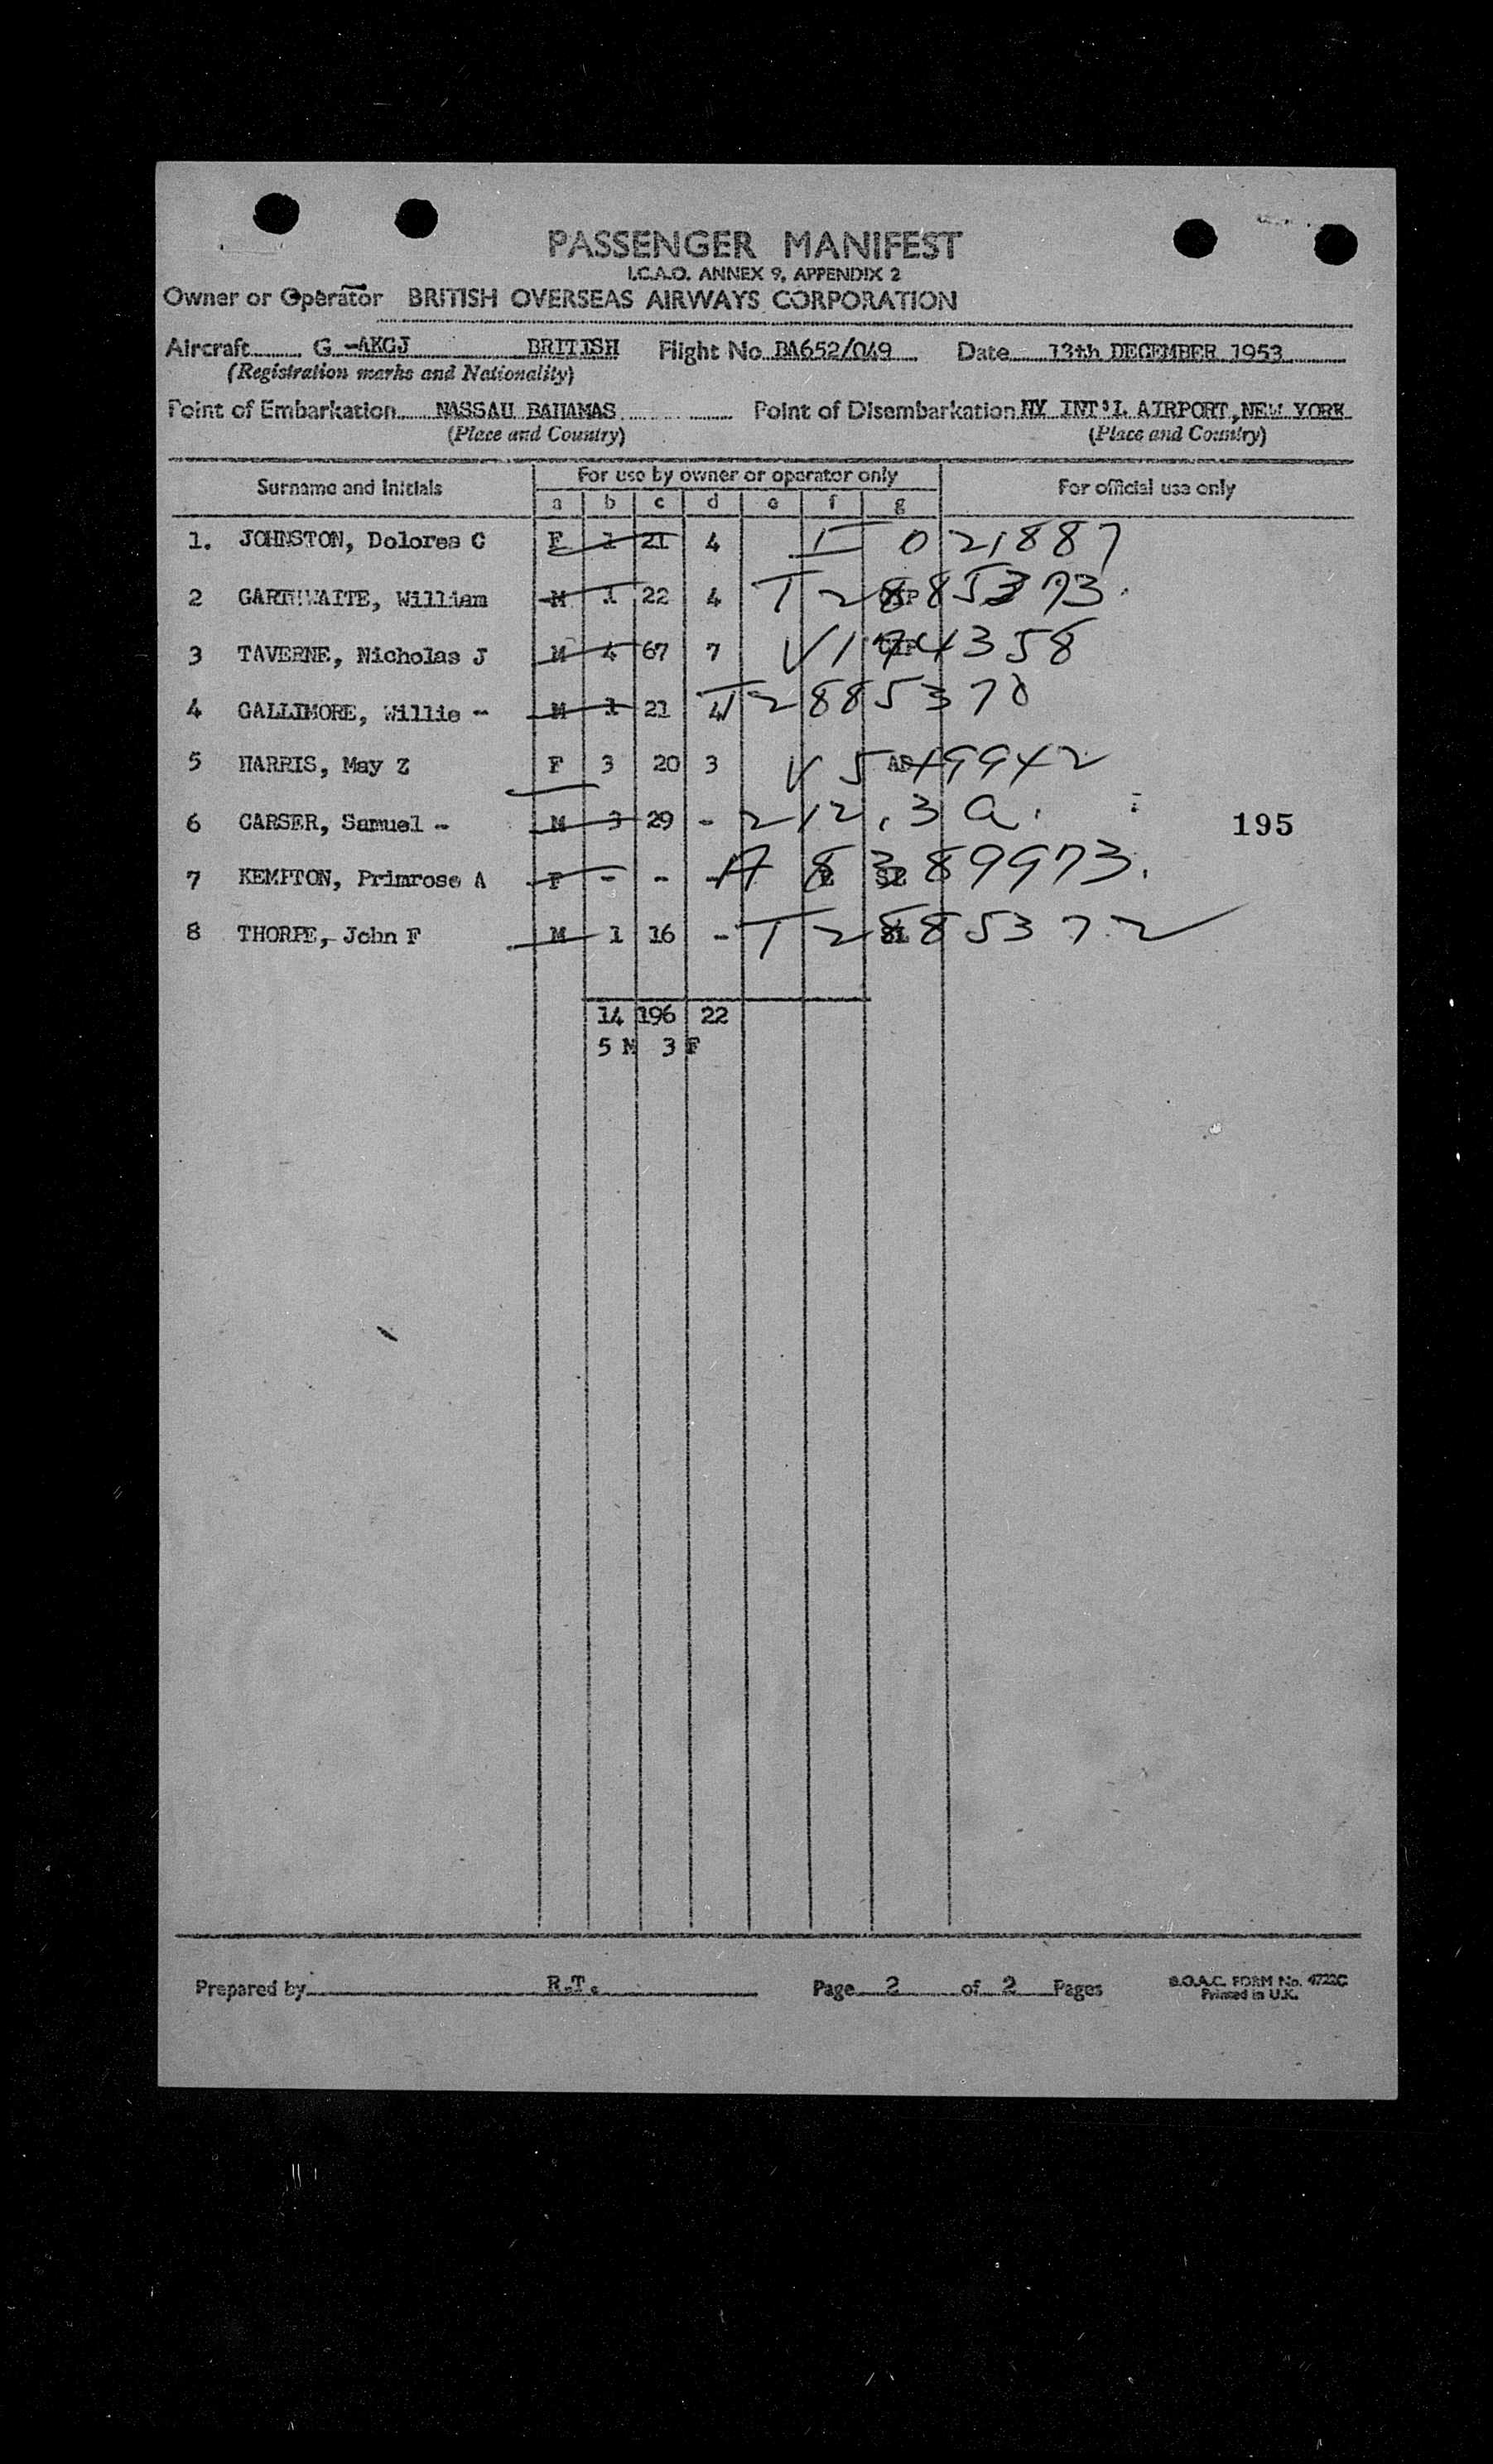 PASSENGER MANIFEST
I.C.A.O. ANNEX 9, APPENDIX 2
Owner or Operator BRITISH OVERSEAS AIRWAYS CORPORATION
Aircraft G -AKGJ BRITISH Flight No. BA652/049 Date 13th DECEMBER 1953
(Registration marks and Nationality)
Point of Embarkation NASSAU BAHAMAS Point of Disembarkation NY INT'L AIRPORT, NEW YORK
(Place and Country) (Place and Country)
Surname and Initials For use by owner or operator only For official use only
a b c d e f g
1. JOHNSTON, Dolores C F 1 21 4 I 021,887
2 GARTHWAITE, William M 1 22 4 T2885373.
3 TAVERNE, Nicholas J M 4 67 7 V1744358
4 GALLIMORE, Willie - M 1 21 4 T2885370
5 HARRIS, May Z F 3 20 3 V 549942
6 CARSER, Samuel - M 3 29 - 212.3 a.
195
7 KEMPTON, Primrose A F - - - A 8389973.
8 THORPE, John F M 1 16 - T2885372
14 196 22
5 M 3 F
Prepared by R.T. Page 2 of 2 Pages B.O.A.C. FORM No. 4722C
Printed in U.K.